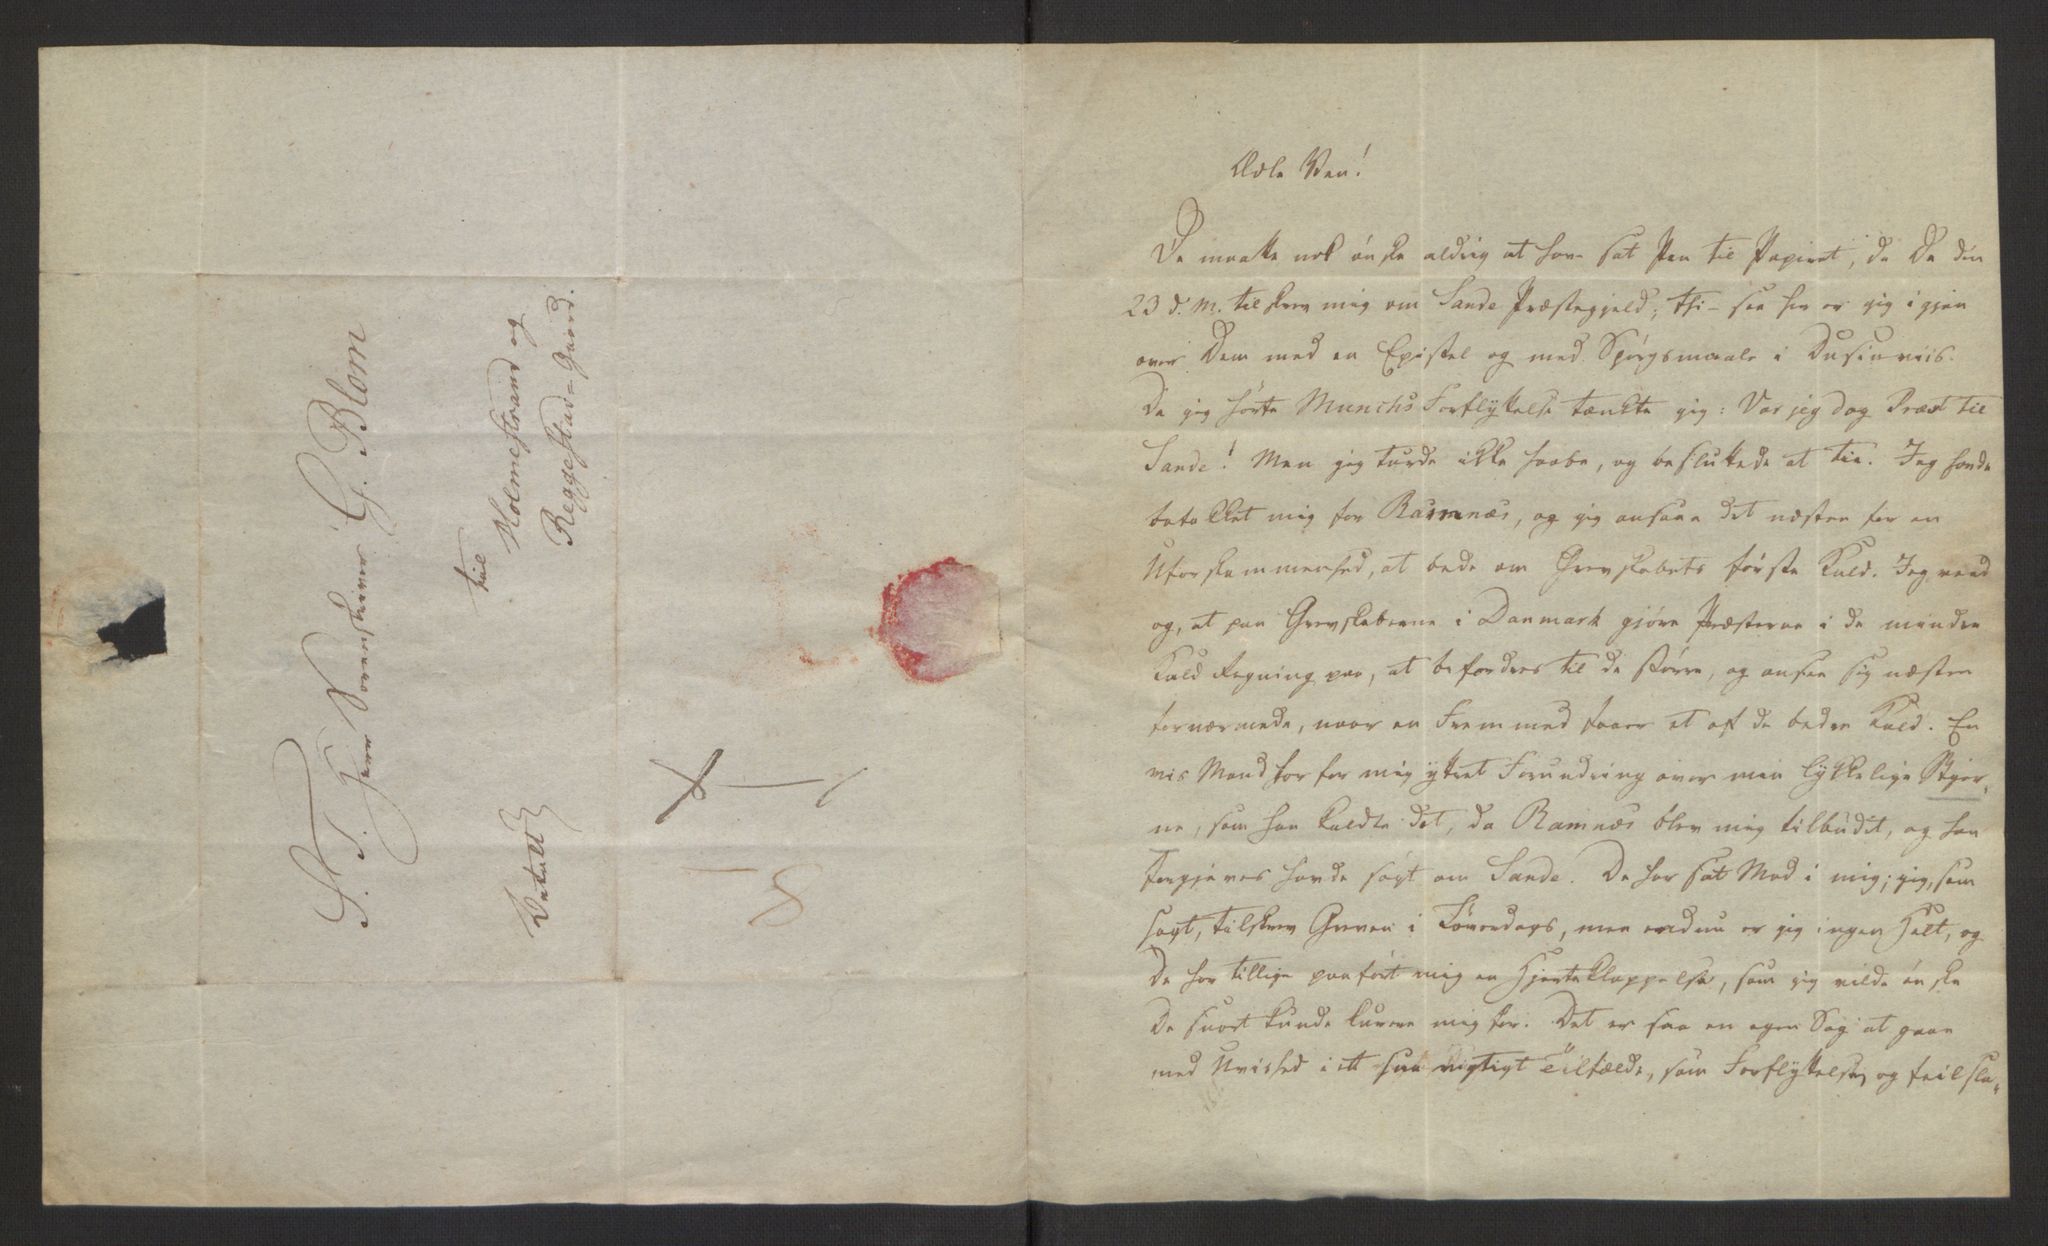 S. T. Herr Sorenskriver G. Blom
til
Holmestrand og
Reggestad-Gaard.
Betalt
8
Ædle Ven!
De maatte nok ønske aldrig at have sat Pen til Papiret, da De den
23 d. M. tilskrev mig om Sande Præstegjeld; thi – see her er jeg igjen
over Dem med en Epistel og med Spørgsmaale i Dusinviis.
Da jeg hørte Munchs Forflyttelse tænkte jeg: Var jeg dog Præst til
Sande! Men jeg turde ikke haabe, og besluttede at tie. Jeg havde
betakket mig for Ramnæs, og jeg ansaae det næsten for en
Uforskammenhed, at bede om Grevskabets første Kald. Jeg veed
og, at paa Grevskaberne i Danmark gjøre Præsterne i de mindre
Kald Regning paa, at befordres til de større, og ansee sig næsten
fornærmede, naar en Fremmed faaer et af de bedre Kald. En
vis Mand har for mig yttret Forundring over min lykkelige Stjer-
ne, som han kaldte det, da Ramnæs blev mig tilbudt, og han
forgjæves havde søgt om Sande. De har sat Mod i mig; jeg, som
sagt, tilskrev Greven i Løverdags, men endnu er jeg ingen Helt, og
De har tillige paaført mig en Hjerteklappelse, som jeg vilde ønske
De snart kunde kurere mig for. Det er saa en egen Sag at gaae
med Uvished i et saa vigtigt Tilfælde, som Forflyttelse, og feilsla-